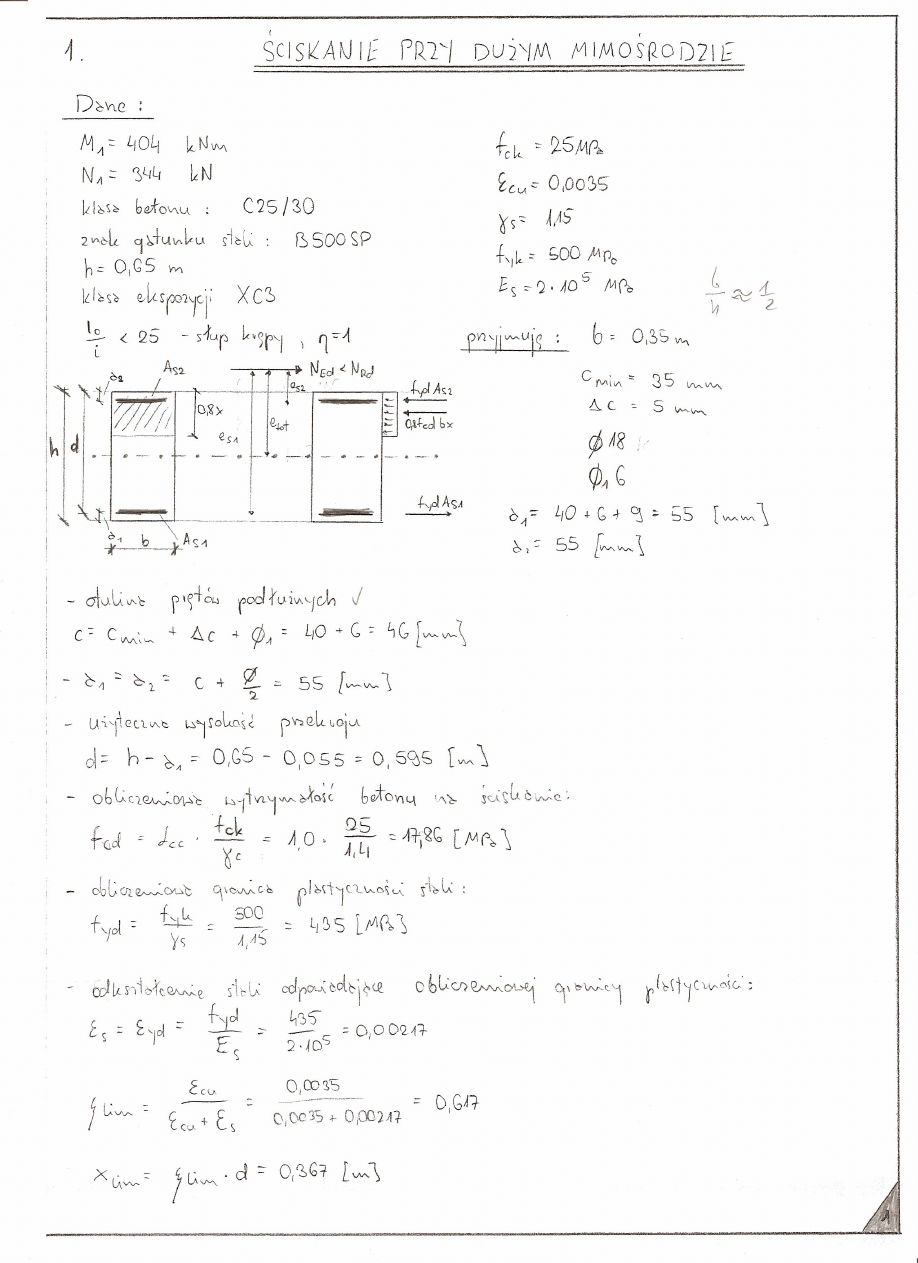 1. ŚCISKANIE PRZY DUŻYM MIMOŚRODZIE
Dane :
M₁ = 404 kNm
N₁ = 344 kN
klasa betonu : C25/30
znak gatunku stali : B500SP
h = 0,65 m
klasa ekspozycji XC3
l₀/i < 25 - słup krępy , η=1
fck = 25 MPa
εcu = 0,0035
γs = 1,15
fyk = 500 MPa
Es = 2·10⁵ MPa
b/h ≈ 1/2
przyjmuję : b = 0,35 m
cmin = 35 mm
Δc = 5 mm
φ 18
φ₁ 6
a₁ = 40 + 6 + 9 = 55 [mm]
a₂ = 55 [mm]
a₂ As2 NEd < NRd
es2
0,8x
fyd As2
etot
es1
fcd bx
h d
fyd As1
a₁ b As1
- otulina prętów podłużnych √
c = cmin + Δc + φ₁ = 40 + 6 = 46 [mm]
- a₁ = a₂ = c + φ/2 = 55 [mm]
- użyteczna wysokość przekroju
d = h - a₁ = 0,65 - 0,055 = 0,595 [m]
- obliczeniowa wytrzymałość betonu na ściskanie:
fcd = αcc · fck/γc = 1,0 · 25/1,4 = 17,86 [MPa]
- obliczeniowa granica plastyczności stali :
fyd = fyk/γs = 500/1,15 = 435 [MPa]
- odkształcenie stali odpowiadające obliczeniowej granicy plastyczności :
εs = εyd = fyd/Es = 435/2·10⁵ = 0,00217
ξlim = εcu/εcu + εs = 0,0035/0,0035 + 0,00217 = 0,617
xlim = ξlim · d = 0,367 [m]
1